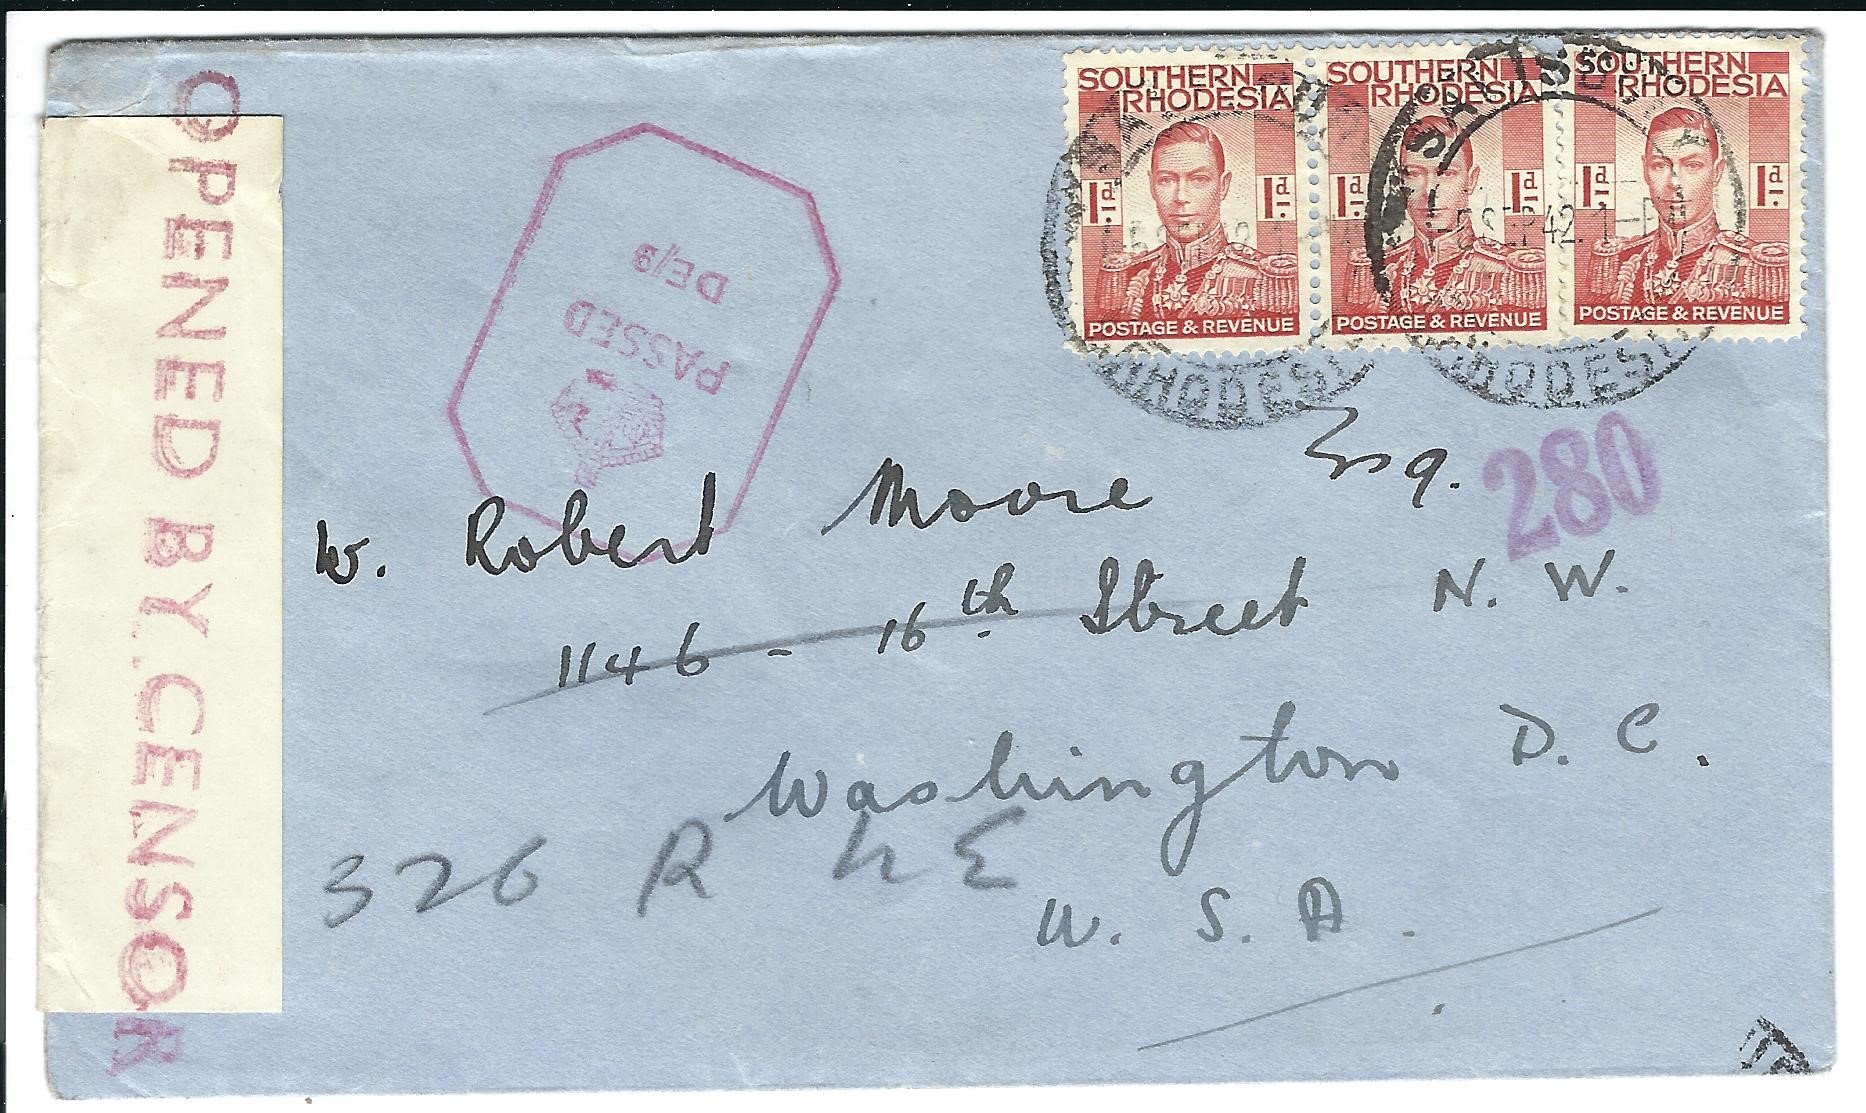 OPENED BY CENSOR
PASSED
DE/9
SOUTHERN
RHODESIA
1d
1d
POSTAGE & REVENUE
SOUTHERN
RHODESIA
1d
1d
POSTAGE & REVENUE
SOUTHERN
RHODESIA
1d
1d
POSTAGE & REVENUE
SALISBURY
5 SEP 42
RHODESIA
280
W. Robert Moore Esq.
1146 - 16th Street N. W.
Washington D. C.
326 R
U. S. A.